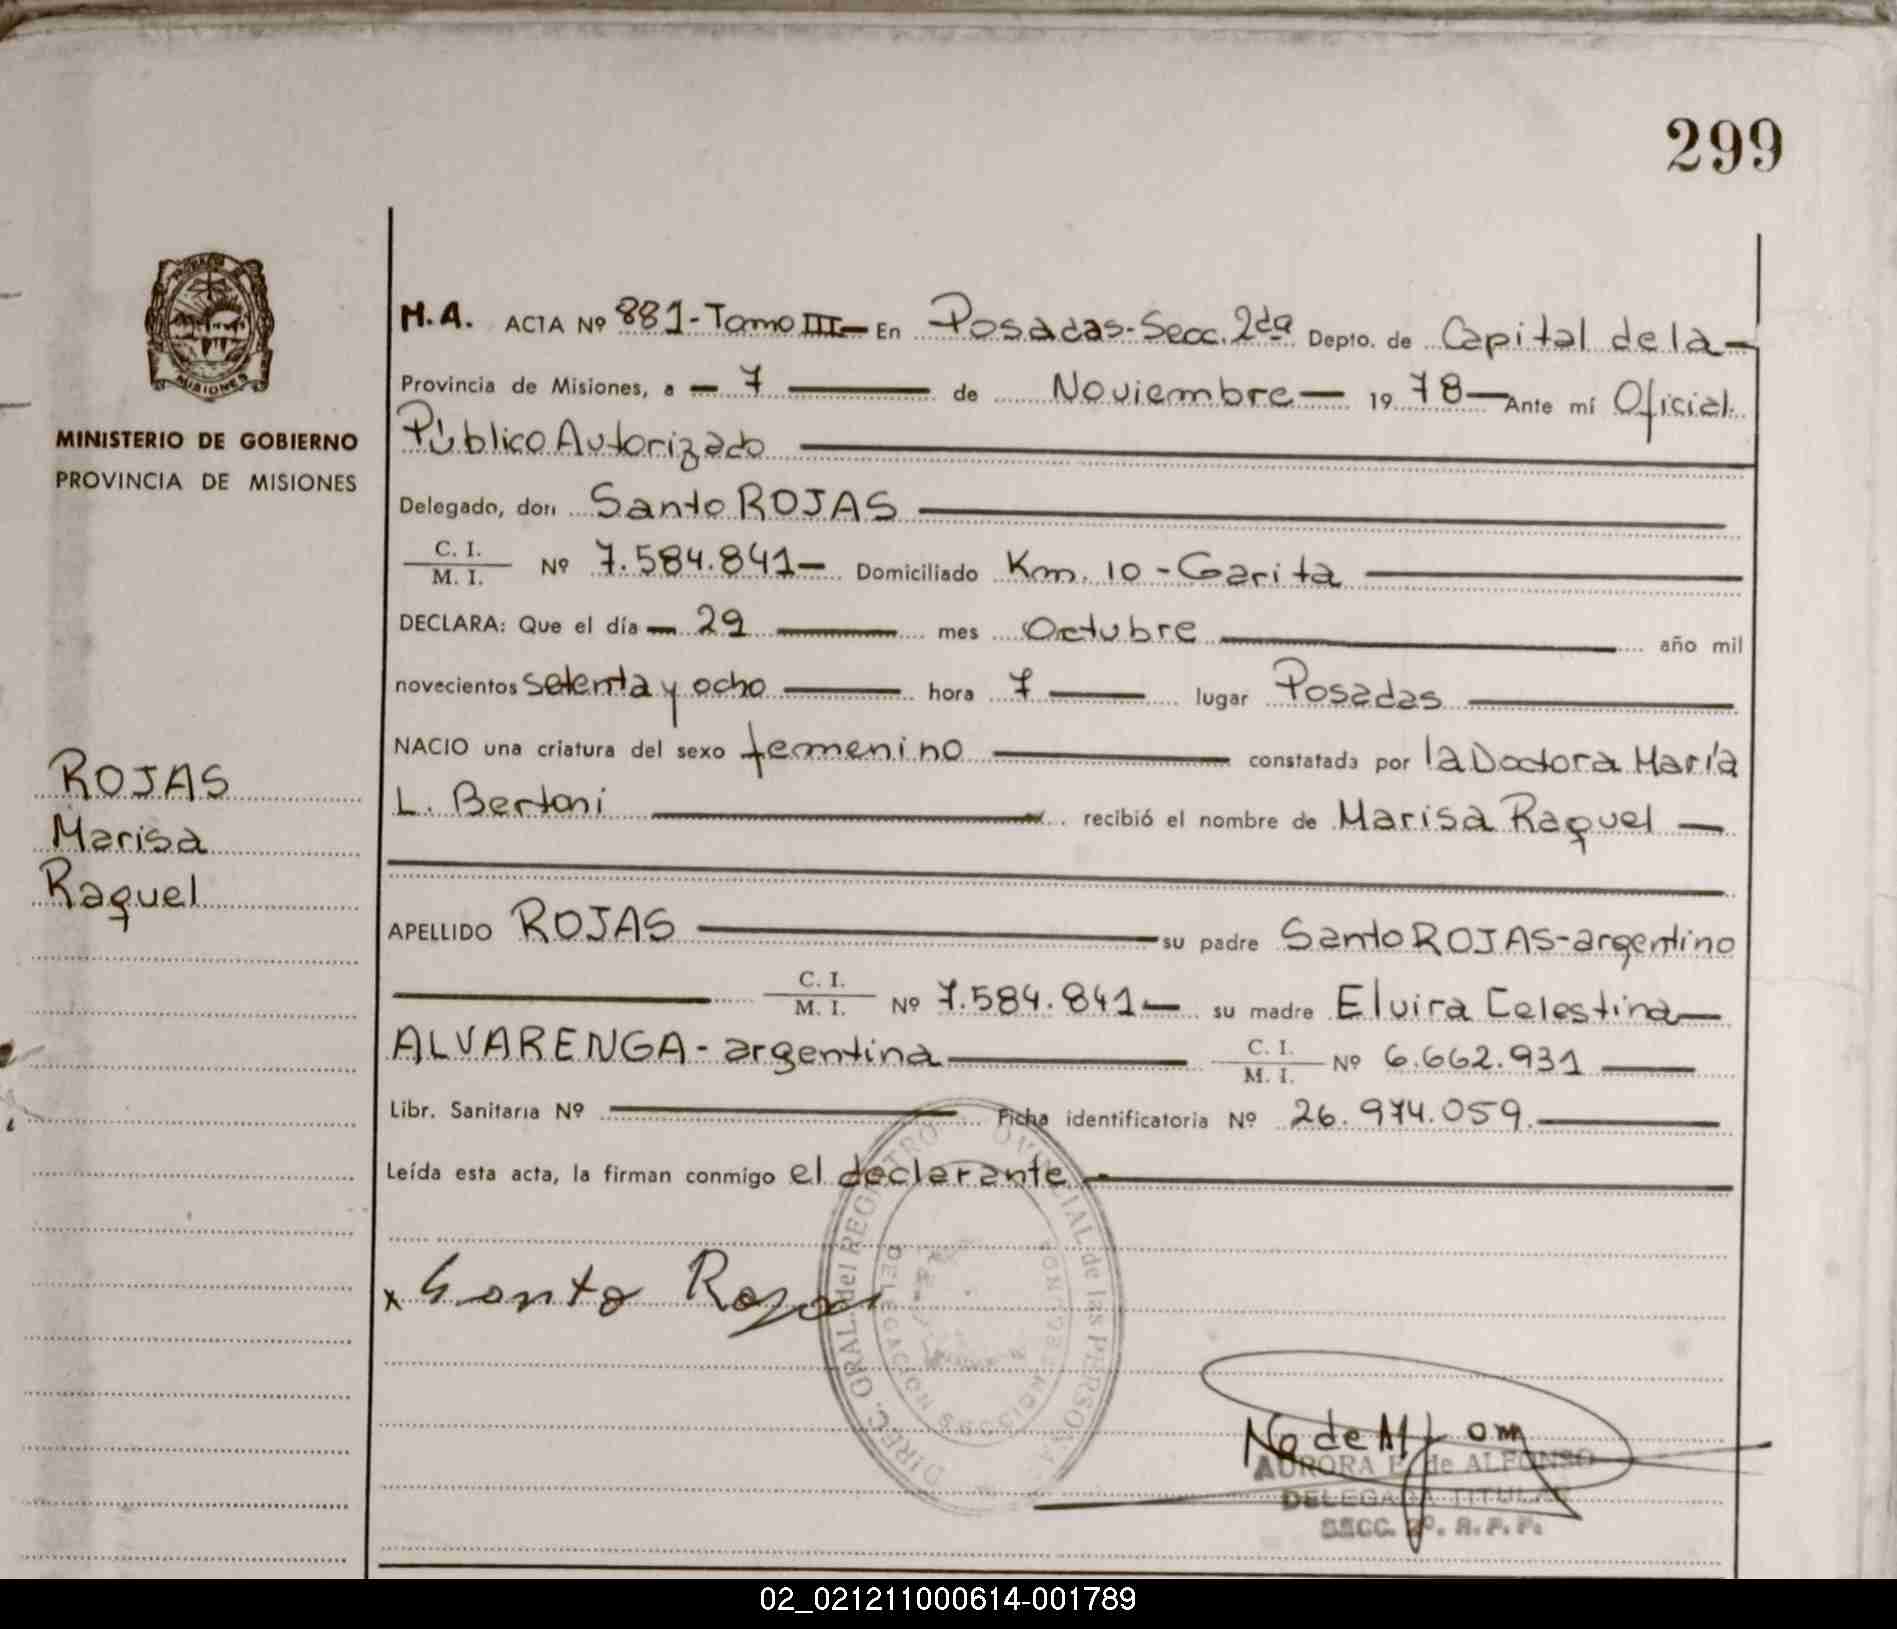 299
MISIONES
MINISTERIO DE GOBIERNO
PROVINCIA DE MISIONES
ROJAS
Marisa
Raquel
M.A. ACTA Nº 881-Tomo III- En Posadas-Secc. 2da Depto. de Capital de la-
Provincia de Misiones, a - 7 - de Noviembre - 1978 - Ante mí Oficial
Público Autorizado
Delegado, don Santo ROJAS
C. I. / M. I. Nº 7.584.841- Domiciliado Km. 10 - Garita
DECLARA: Que el día - 29 - mes Octubre - año mil
novecientos setenta y ocho - hora 7 - lugar Posadas
NACIO una criatura del sexo femenino - constatada por la Doctora María
L. Bertoni - recibió el nombre de Marisa Raquel -
APELLIDO ROJAS - su padre Santo ROJAS-argentino
C. I. / M. I. Nº 7.584.841- su madre Elvira Celestina-
ALVARENGA - argentina - C. I. / M. I. Nº 6.662.931
Libr. Sanitaria Nº - Ficha identificatoria Nº 26.974.059.
Leída esta acta, la firman conmigo el declarante.-
x Santo Rojas
DIREC. GRAL. del REGISTRO PROVINCIAL de las PERSONAS
AURORA E. de ALFONSO
DELEGADA TITULAR
SECC. 2º. R. P. P.
02_021211000614-001789